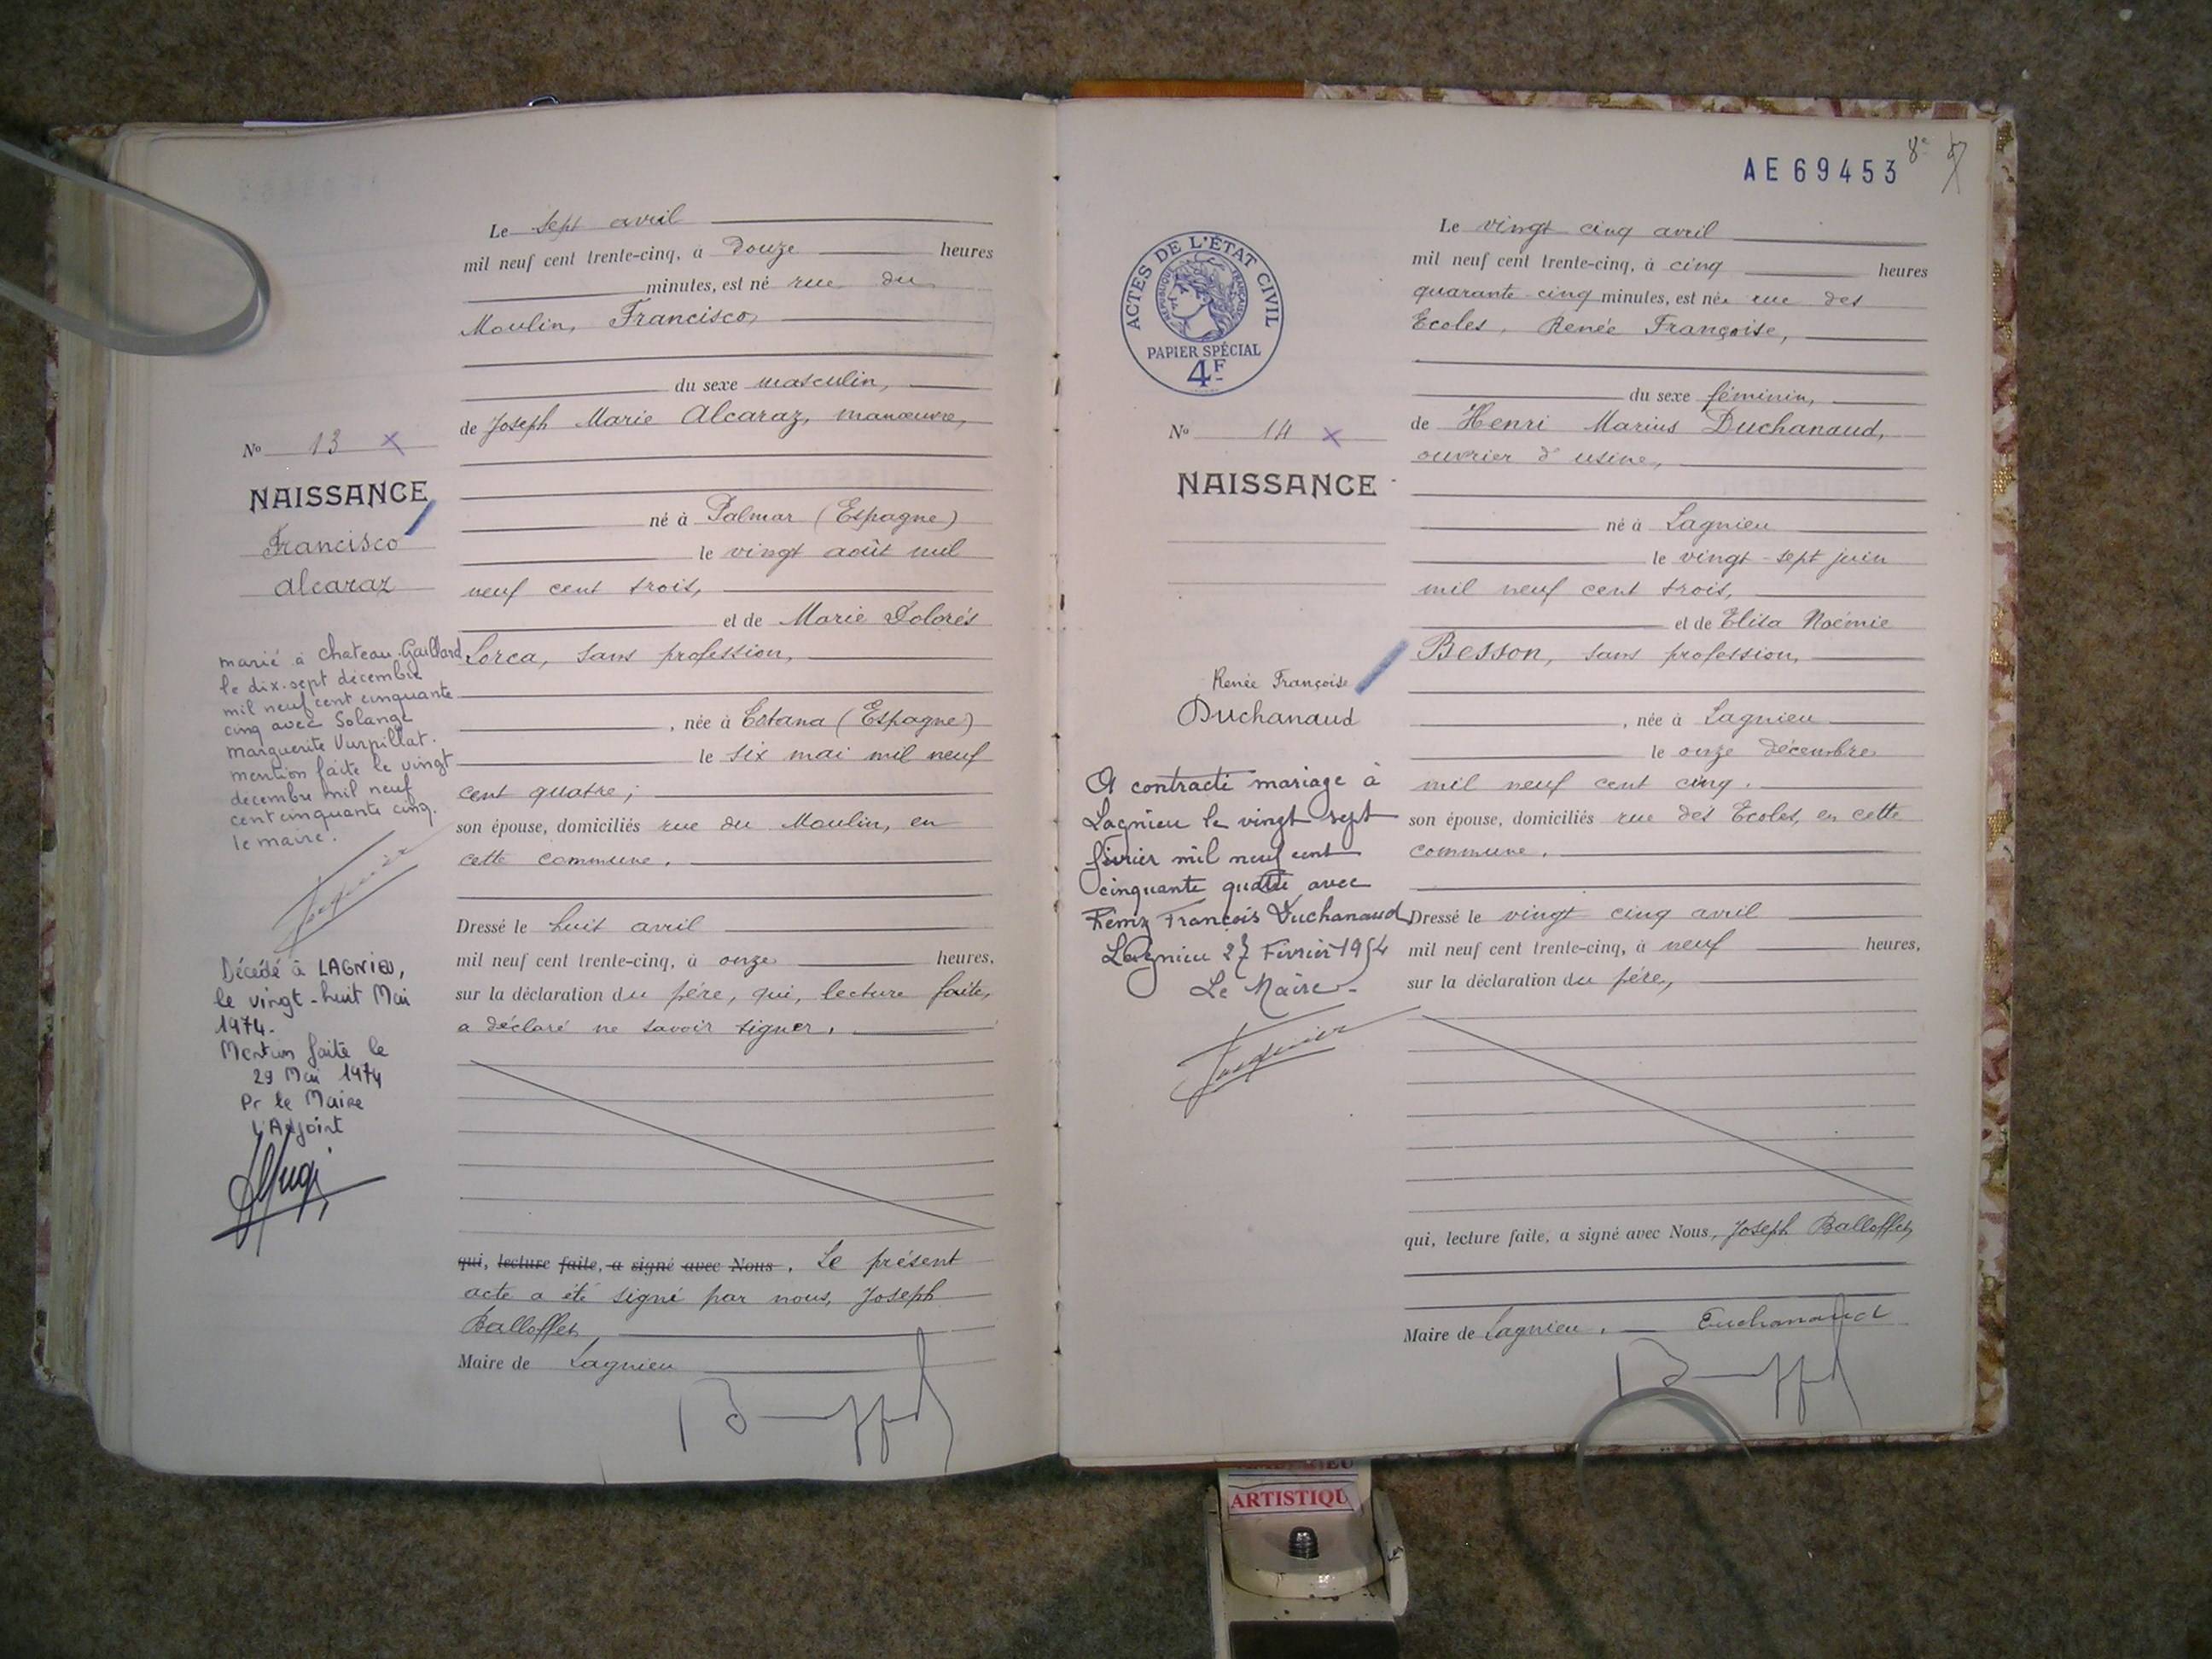 Le sept avril
mil neuf cent trente-cinq, à Douze heures
minutes, est né rue du
Moulin, Francisco,
du sexe masculin,
de Joseph Marie Alcaraz, manœuvre,
né à Palmar (Espagne)
le vingt août mil
neuf cent trois,
et de Marie Dolorés
Lorca, sans profession,
, née à Totana (Espagne)
le six mai mil neuf
cent quatre;
son épouse, domiciliés rue du Moulin, en
cette commune.
Dressé le huit avril
mil neuf cent trente-cinq, à onze heures,
sur la déclaration du père, qui, lecture faite,
a déclaré ne savoir signer.
qui, lecture faite, a signé avec Nous. Le présent
acte a été signé par nous, Joseph
Balloffet,
Maire de Lagnieu
No 13 x
NAISSANCE
Francisco
alcaraz
marié à chateau-Gaillard
le dix-sept décembre
mil neuf cent cinquante
cinq avec Solange
marguerite Vurpillat.
mention faite le vingt
décembre mil neuf
cent cinquante cinq.
le maire.
Décédé à LAGNIEU,
le vingt-huit Mai
1974.
Mention faite le
29 Mai 1974
Pr le Maire
L'Adjoint
AE69453
8e
ACTES DE L'ÉTAT CIVIL
RÉPUBLIQUE FRANÇAISE
PAPIER SPÉCIAL
4F
Le vingt cinq avril
mil neuf cent trente-cinq, à cinq heures
quarante cinq minutes, est née rue des
Ecoles, Renée Françoise,
du sexe féminin,
de Henri Marius Duchanaud,
ouvrier d'usine,
né à Lagnieu
le vingt-sept juin
mil neuf cent trois,
et de Elisa Noémie
Besson, sans profession,
, née à Lagnieu
le onze décembre
mil neuf cent cinq.
son épouse, domiciliés rue des Ecoles, en cette
commune.
Dressé le vingt cinq avril
mil neuf cent trente-cinq, à neuf heures,
sur la déclaration du père,
qui, lecture faite, a signé avec Nous, Joseph Balloffet,
Maire de Lagnieu. Duchanaud
No 14 x
NAISSANCE
Renée Françoise
Duchanaud
A contracté mariage à
Lagnieu le vingt sept
février mil neuf cent
cinquante quatre avec
Rémy François Duchanaud
Lagnieu 27 Février 1954
Le Maire
ARTISTIQU